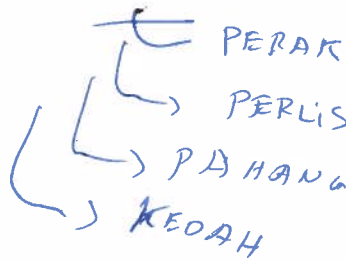 PERAK
PERLiS
PAHANG
KEDAH